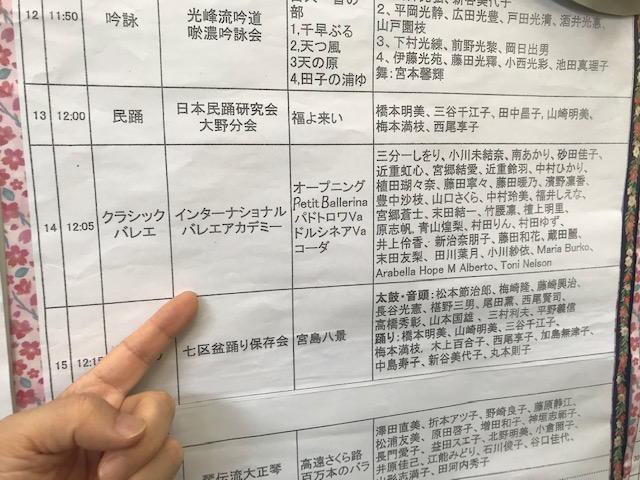 12 11:50 吟詠
光峰流吟道
唹濃吟詠会
部
1,千早ぶる
2,天つ風
3天の原
4,田子の浦ゆ
2、平岡光静、広田光豊、戸田光清、酒井光恵、
山戸園枝
3、下村光線、前野光黎、岡日出男
4、伊藤光苑、藤田光輝、小西光彩、池田真理子
舞:宮本馨輝
13 12:00 民踊
日本民踊研究会
大野分会
福よ来い
橋本明美、三谷千江子、田中昌子、山崎明美、
梅本満枝、西尾享子
14 12:05
クラシック
バレエ
インターナショナル
バレエアカデミー
オープニング
Petit Ballerina
パドトロワVa
ドルシネアVa
コーダ
三分一しをり、小川未結奈、南あかり、砂田佳子、
近重虹心、宮郷結愛、近重鈴羽、中村ひかり、
植田瑚々奈、藤田寧々、藤田暖乃、濱野凛香、
豊中沙枝、山口さくら、中村玲美、福井しえな、
宮郷蒼士、末田結一、竹腰凛、檀上明里、
原志帆、青山煌梨、村田りん、村田ゆず、
井上伶香、新治奈朋子、藤田和花、蔵田麗、
末田友梨、田川葉月、小川紗依、Maria Burko、
Arabella Hope M Alberto、Toni Nelson
15 12:15
七区盆踊り保存会
宮島八景
太鼓・音頭:松本節治郎、梅崎隆、藤崎興治、
長谷光憲、椹野三男、尾田薫、西尾賢司、
高橋秀彰、山本国雄、三村利夫、平野義信
踊り:橋本明美、山崎明美、三谷千江子、
梅本満枝、木上百合子、西尾享子、加島無津子、
中島寿子、新谷美代子、丸本則子
琴伝流大正琴
高遠さくら路
百万本のバラ
澤田直美、折本アツ子、野崎良子、藤原静江、
松浦友美、原田啓子、増田和子、神垣志範子、
長門愛子、益田スエ子、北野明美、小倉照子、
井原佳己、江能みどり、石川俊子、谷口佳代、
山形志満子、田河内秀子